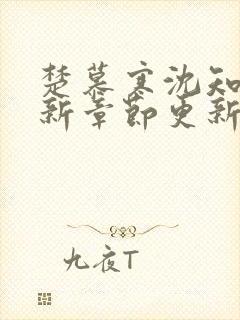 楚慕寒沈知
新章节更新
九夜T